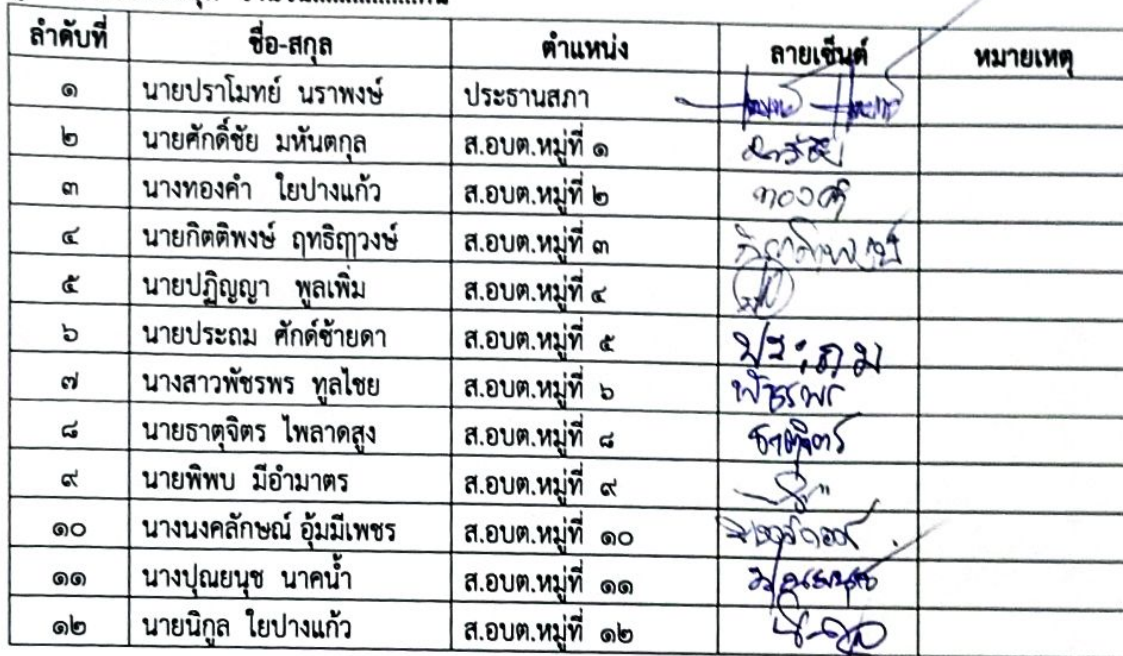 ลำดับที่ ชื่อ-สกุล ตำแหน่ง ลายเซ็นต์ หมายเหตุ
๑ นายปราโมทย์ นราพงษ์ ประธานสภา
๒ นายศักดิ์ชัย มหันตกุล ส.อบต.หมู่ที่ ๑ ศักดิ์ชัย
๓ นางทองคำ ใยปางแก้ว ส.อบต.หมู่ที่ ๒ ทองคำ
๔ นายกิตติพงษ์ ฤทธิฤาวงษ์ ส.อบต.หมู่ที่ ๓ กิตติพงษ์
๕ นายปฏิญญา พูลเพิ่ม ส.อบต.หมู่ที่ ๔
๖ นายประถม ศักด์ซ้ายดา ส.อบต.หมู่ที่ ๕ ประถม
๗ นางสาวพัชรพร ทูลไชย ส.อบต.หมู่ที่ ๖ พัชรพร
๘ นายธาตุจิตร ไพลาดสูง ส.อบต.หมู่ที่ ๘ ธาตุจิตร
๙ นายพิพบ มีอำมาตร ส.อบต.หมู่ที่ ๙
๑๐ นางนงคลักษณ์ อุ้มมีเพชร ส.อบต.หมู่ที่ ๑๐
๑๑ นางปุณยนุช นาคน้ำ ส.อบต.หมู่ที่ ๑๑ ปุณยนุช
๑๒ นายนิกูล ใยปางแก้ว ส.อบต.หมู่ที่ ๑๒ นิกูล